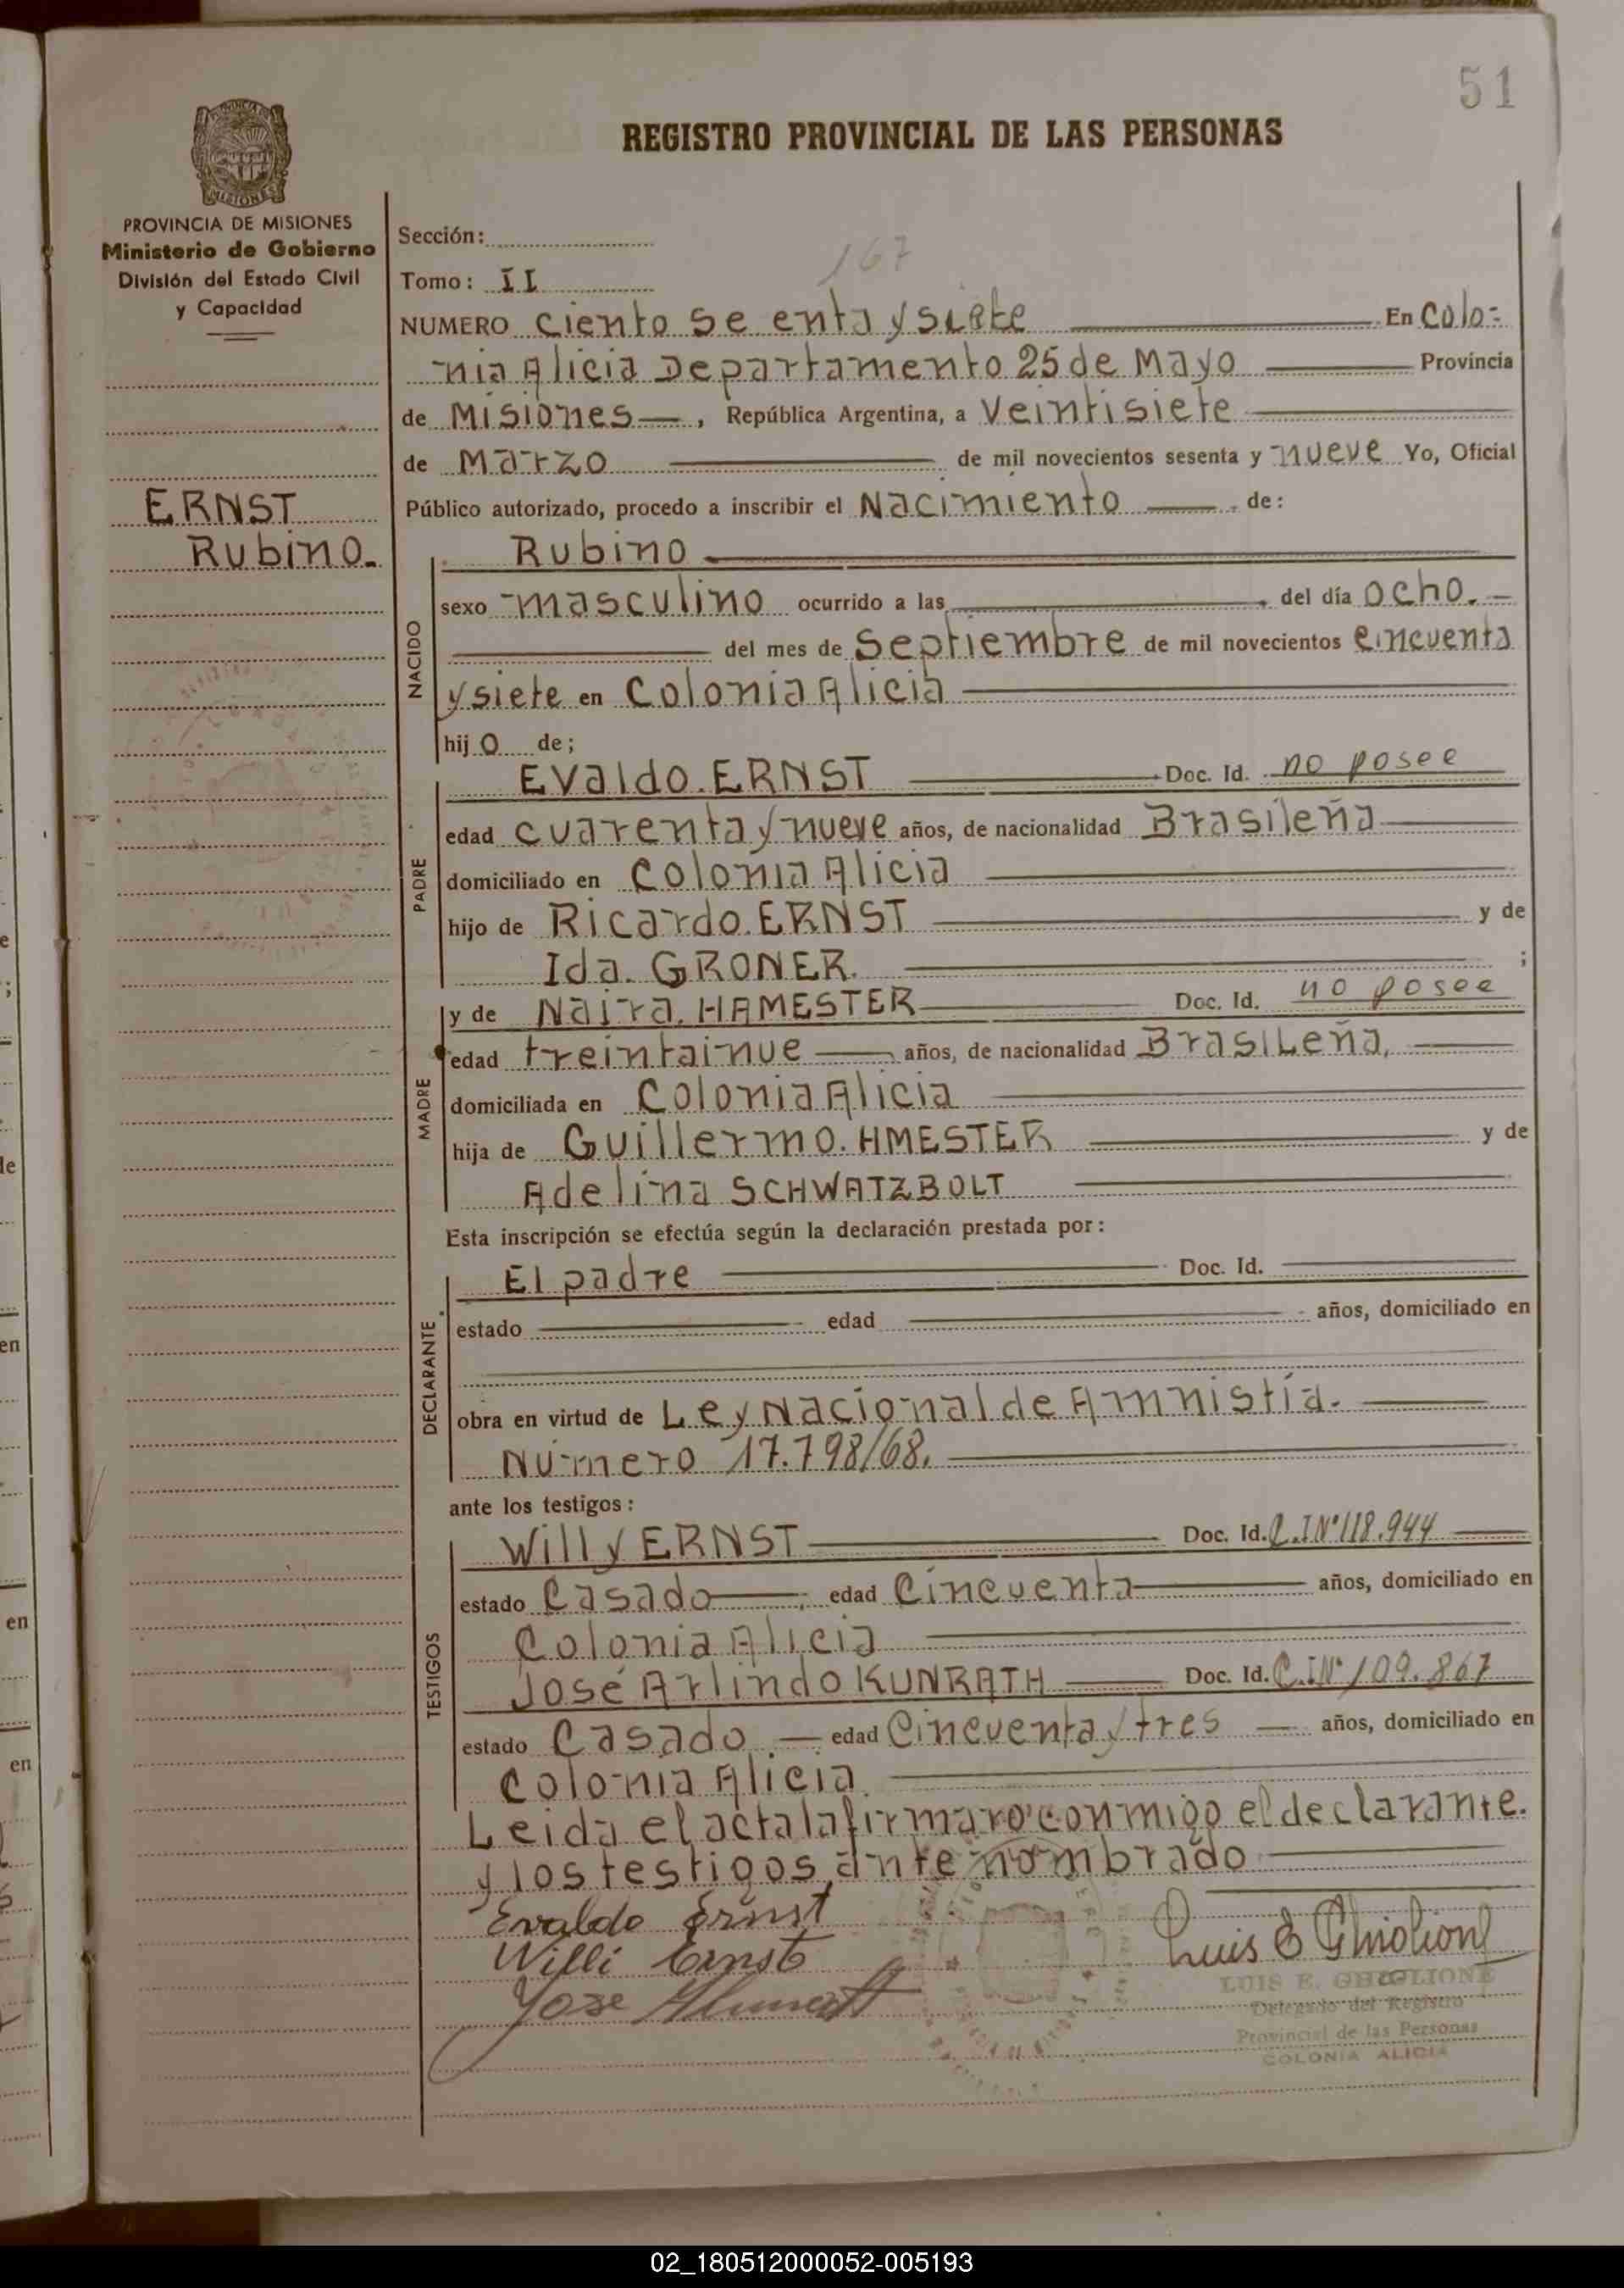 51
REGISTRO PROVINCIAL DE LAS PERSONAS
PROVINCIA DE MISIONES
Ministerio de Gobierno
División del Estado Civil
y Capacidad
ERNST
Rubino.
Sección:
167
Tomo: II
NUMERO ciento se enta y siete En Colo-
nia Alicia Departamento 25 de Mayo Provincia
de Misiones, República Argentina, a Veintisiete
de Marzo de mil novecientos sesenta y nueve Yo, Oficial
Público autorizado, procedo a inscribir el Nacimiento de:
NACIDO
Rubino
sexo masculino ocurrido a las del día ocho.
del mes de Septiembre de mil novecientos cincuenta
y siete en Colonia Alicia
hijo de;
PADRE
Evaldo. ERNST Doc. Id. no posee
edad cuarenta y nueve años, de nacionalidad Brasileña
domiciliado en Colonia Alicia
hijo de Ricardo. ERNST y de
Ida. GRONER. ;
MADRE
y de Naira. HAMESTER Doc. Id. no posee
edad treintainue años, de nacionalidad Brasileña,
domiciliada en Colonia Alicia
hija de Guillermo. HMESTER y de
Adelina SCHWATZBOLT
Esta inscripción se efectúa según la declaración prestada por:
DECLARANTE
El padre Doc. Id.
estado edad años, domiciliado en
obra en virtud de Ley Nacional de Amnistía.
Número 17.798/68.
ante los testigos:
TESTIGOS
Willy ERNST Doc. Id. C.I Nº 118.944
estado Casado edad Cincuenta años, domiciliado en
Colonia Alicia
José Arlindo KUNRATH Doc. Id. C.I Nº 109.867
estado Casado. edad Cincuenta y tres años, domiciliado en
Colonia Alicia
Leida el acta la firmaro conmigo el declarante.
y los testigos, ante nombrado
Evaldo Ernst
Willi Ernst
Jose
Luis E Ghiglione
LUIS E. GHIGLIONE
Delegado del Registro
Provincial de las Personas
COLONIA ALICIA
02_180512000052-005193